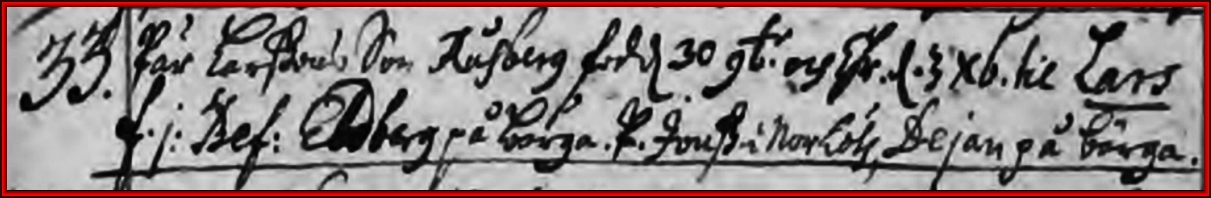 33. Pär Larssons Son Rusberg född 30 9br. och Chr. d. 3 Xb. hic Lars
f. j. Bef: Edberg på Börga. P. Jonss i Norlöts, Dejan på börga.